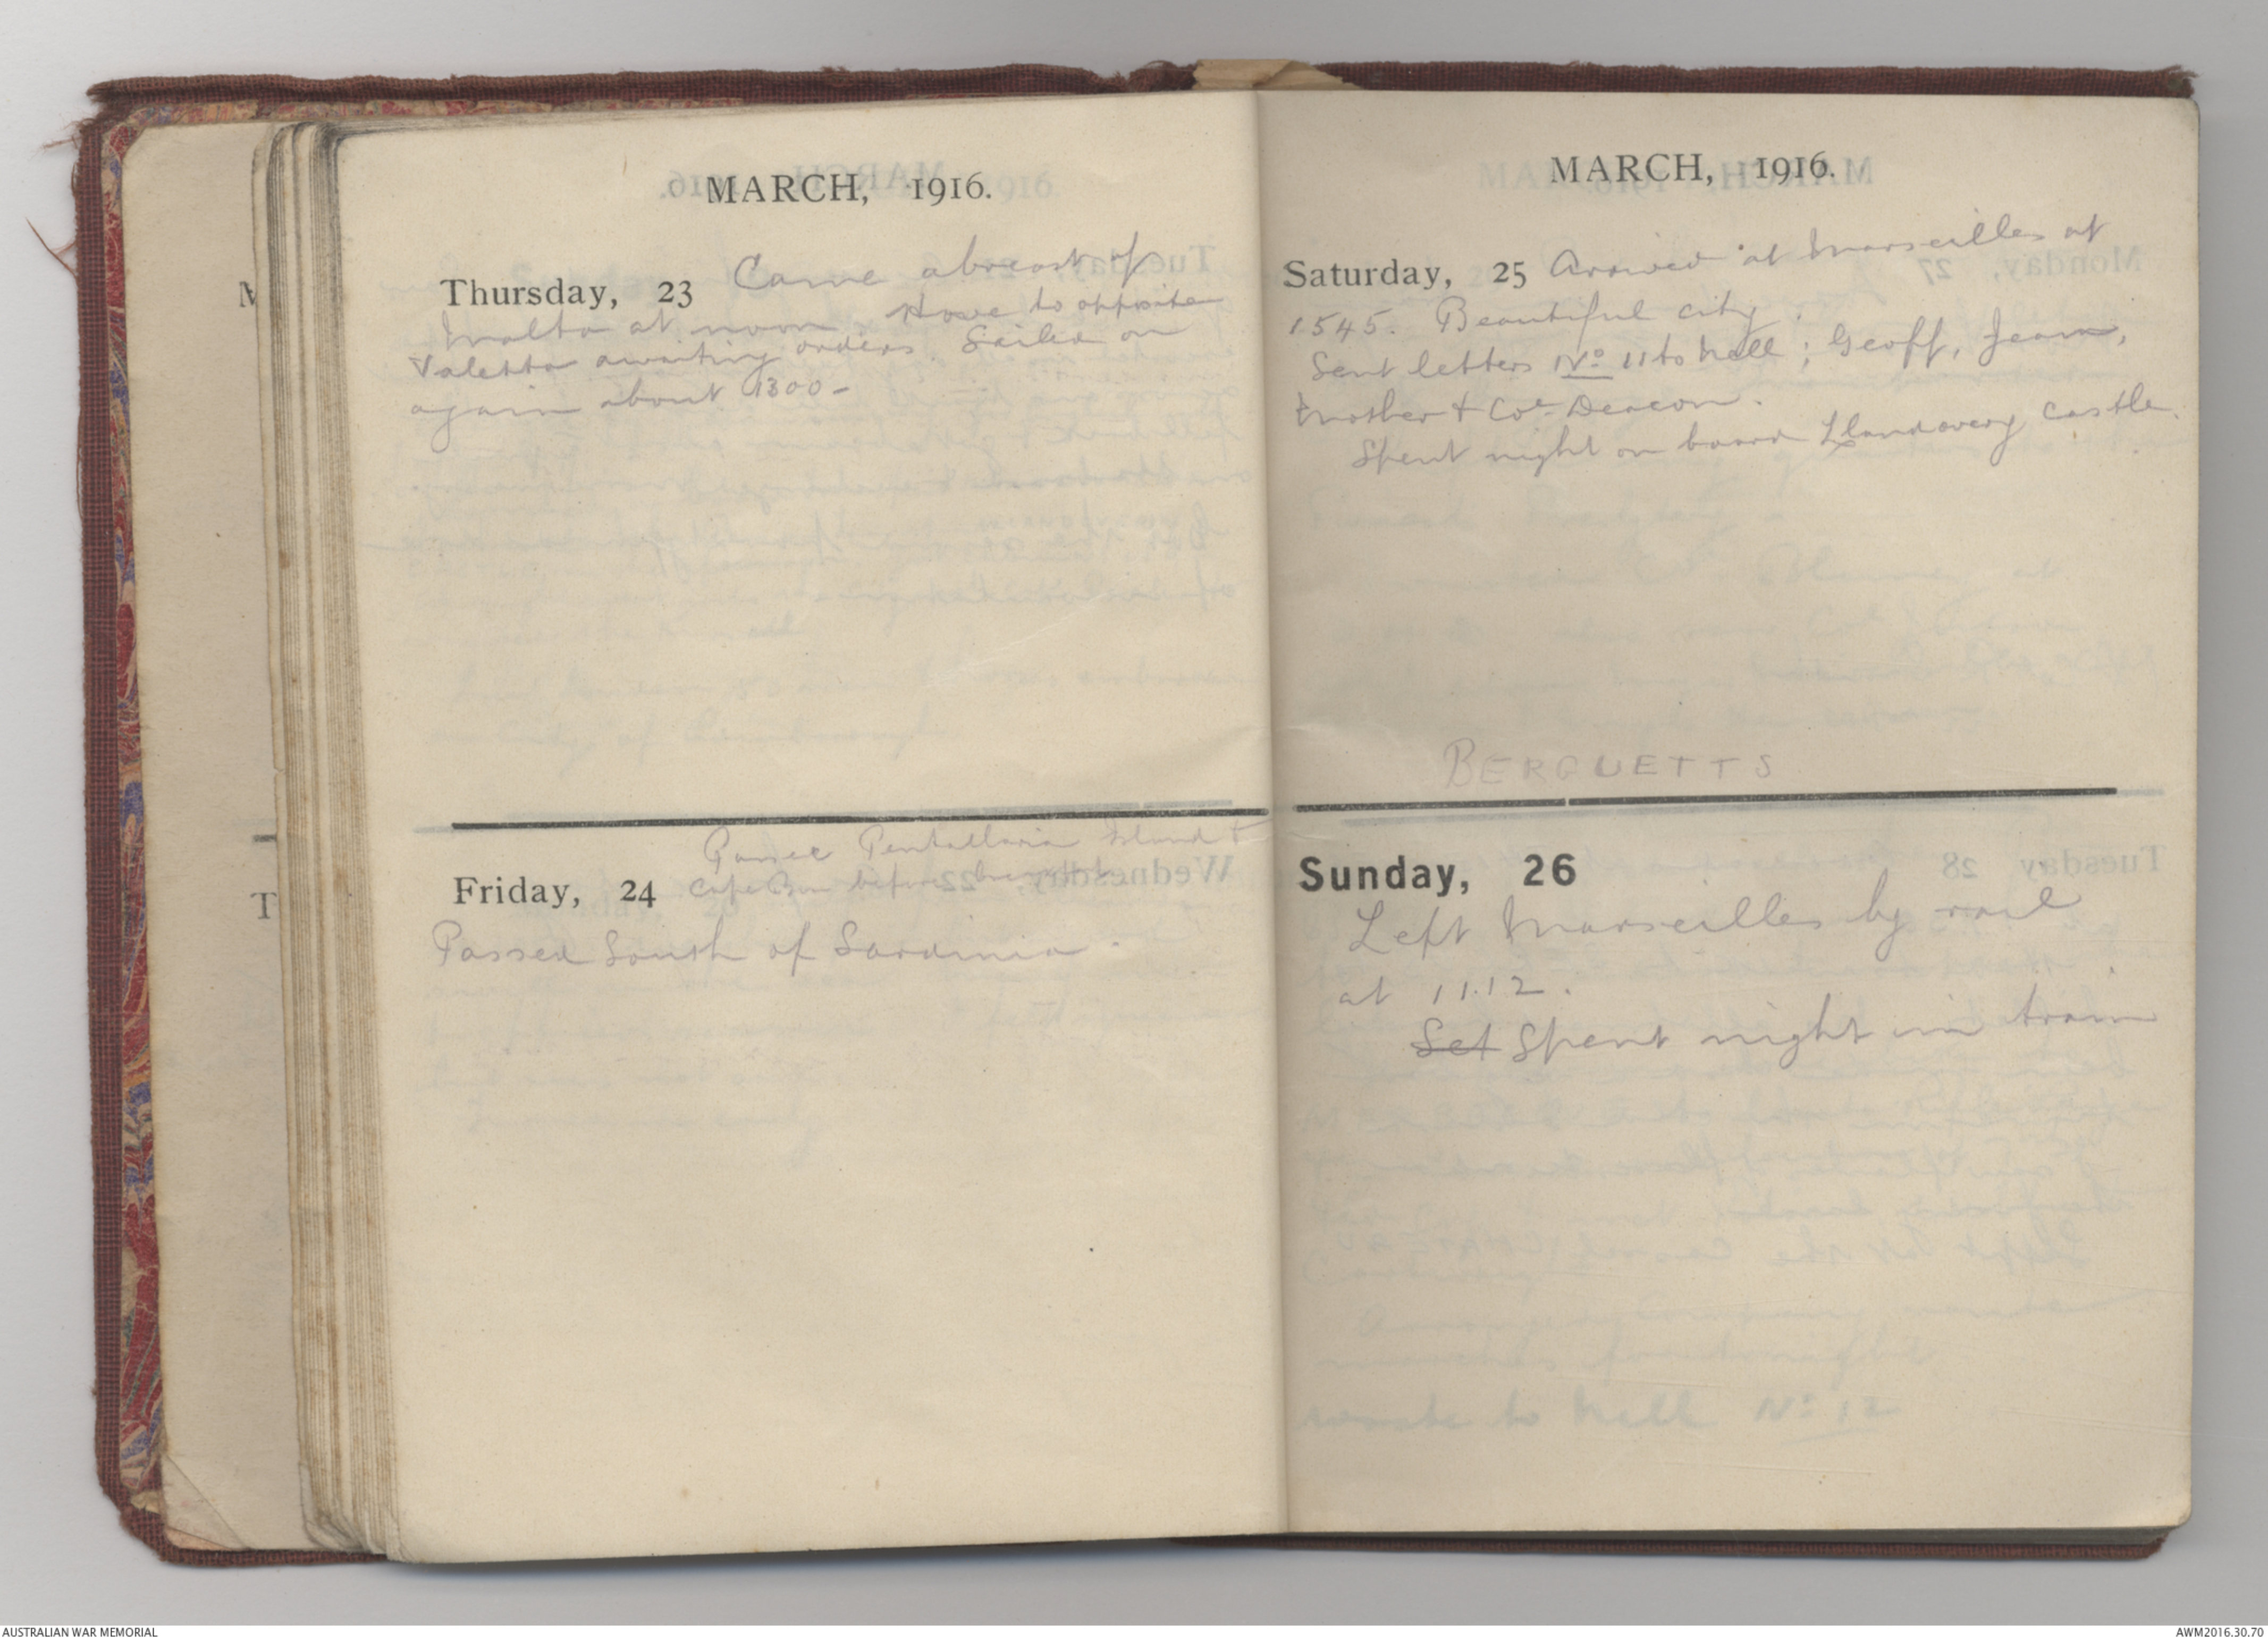 MARCH, 1916.
Thursday, 23 Came abreast of
Malta at noon. Hove to opposite
Valetta awaiting orders. Sailed on
again about 1300-
Passed Pentallaria Island &
Friday, 24 Cape Bon before breakfast
Passed South of Sardinia.
MARCH, 1916.
Saturday, 25 Arrived at Marseilles at
1545. Beautiful city.
Sent letters No 11 to Nell; Geoff, Jean,
Mother & Col Deacon.
Spent night on board Llandovery Castle.
BERGUETTS
Sunday, 26
Left Marseilles by rail
at 11.12.
Set Spent night in train
AUSTRALIAN WAR MEMORIAL
AWM2016.30.70